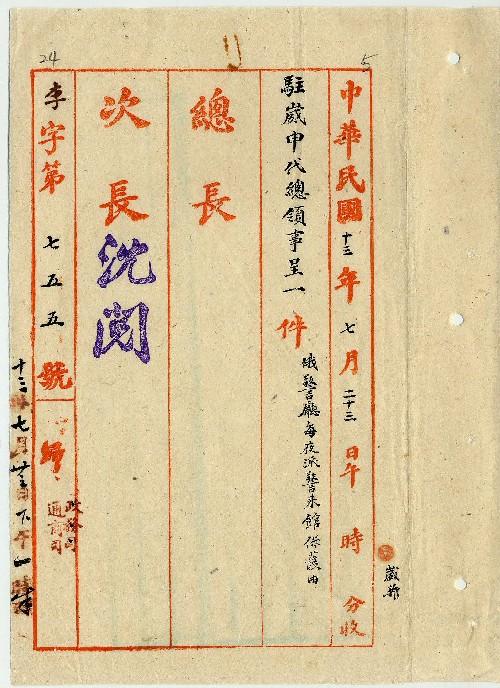 5
中華民國十三年七月二十三日午 時 分收
駐崴申代總領事呈一件
俄警廳每夜派警來館保護由
總長
次長
沈閱
李字第七五五號
歸
政務司
通商司
十三年七月廿三日下午一時
24